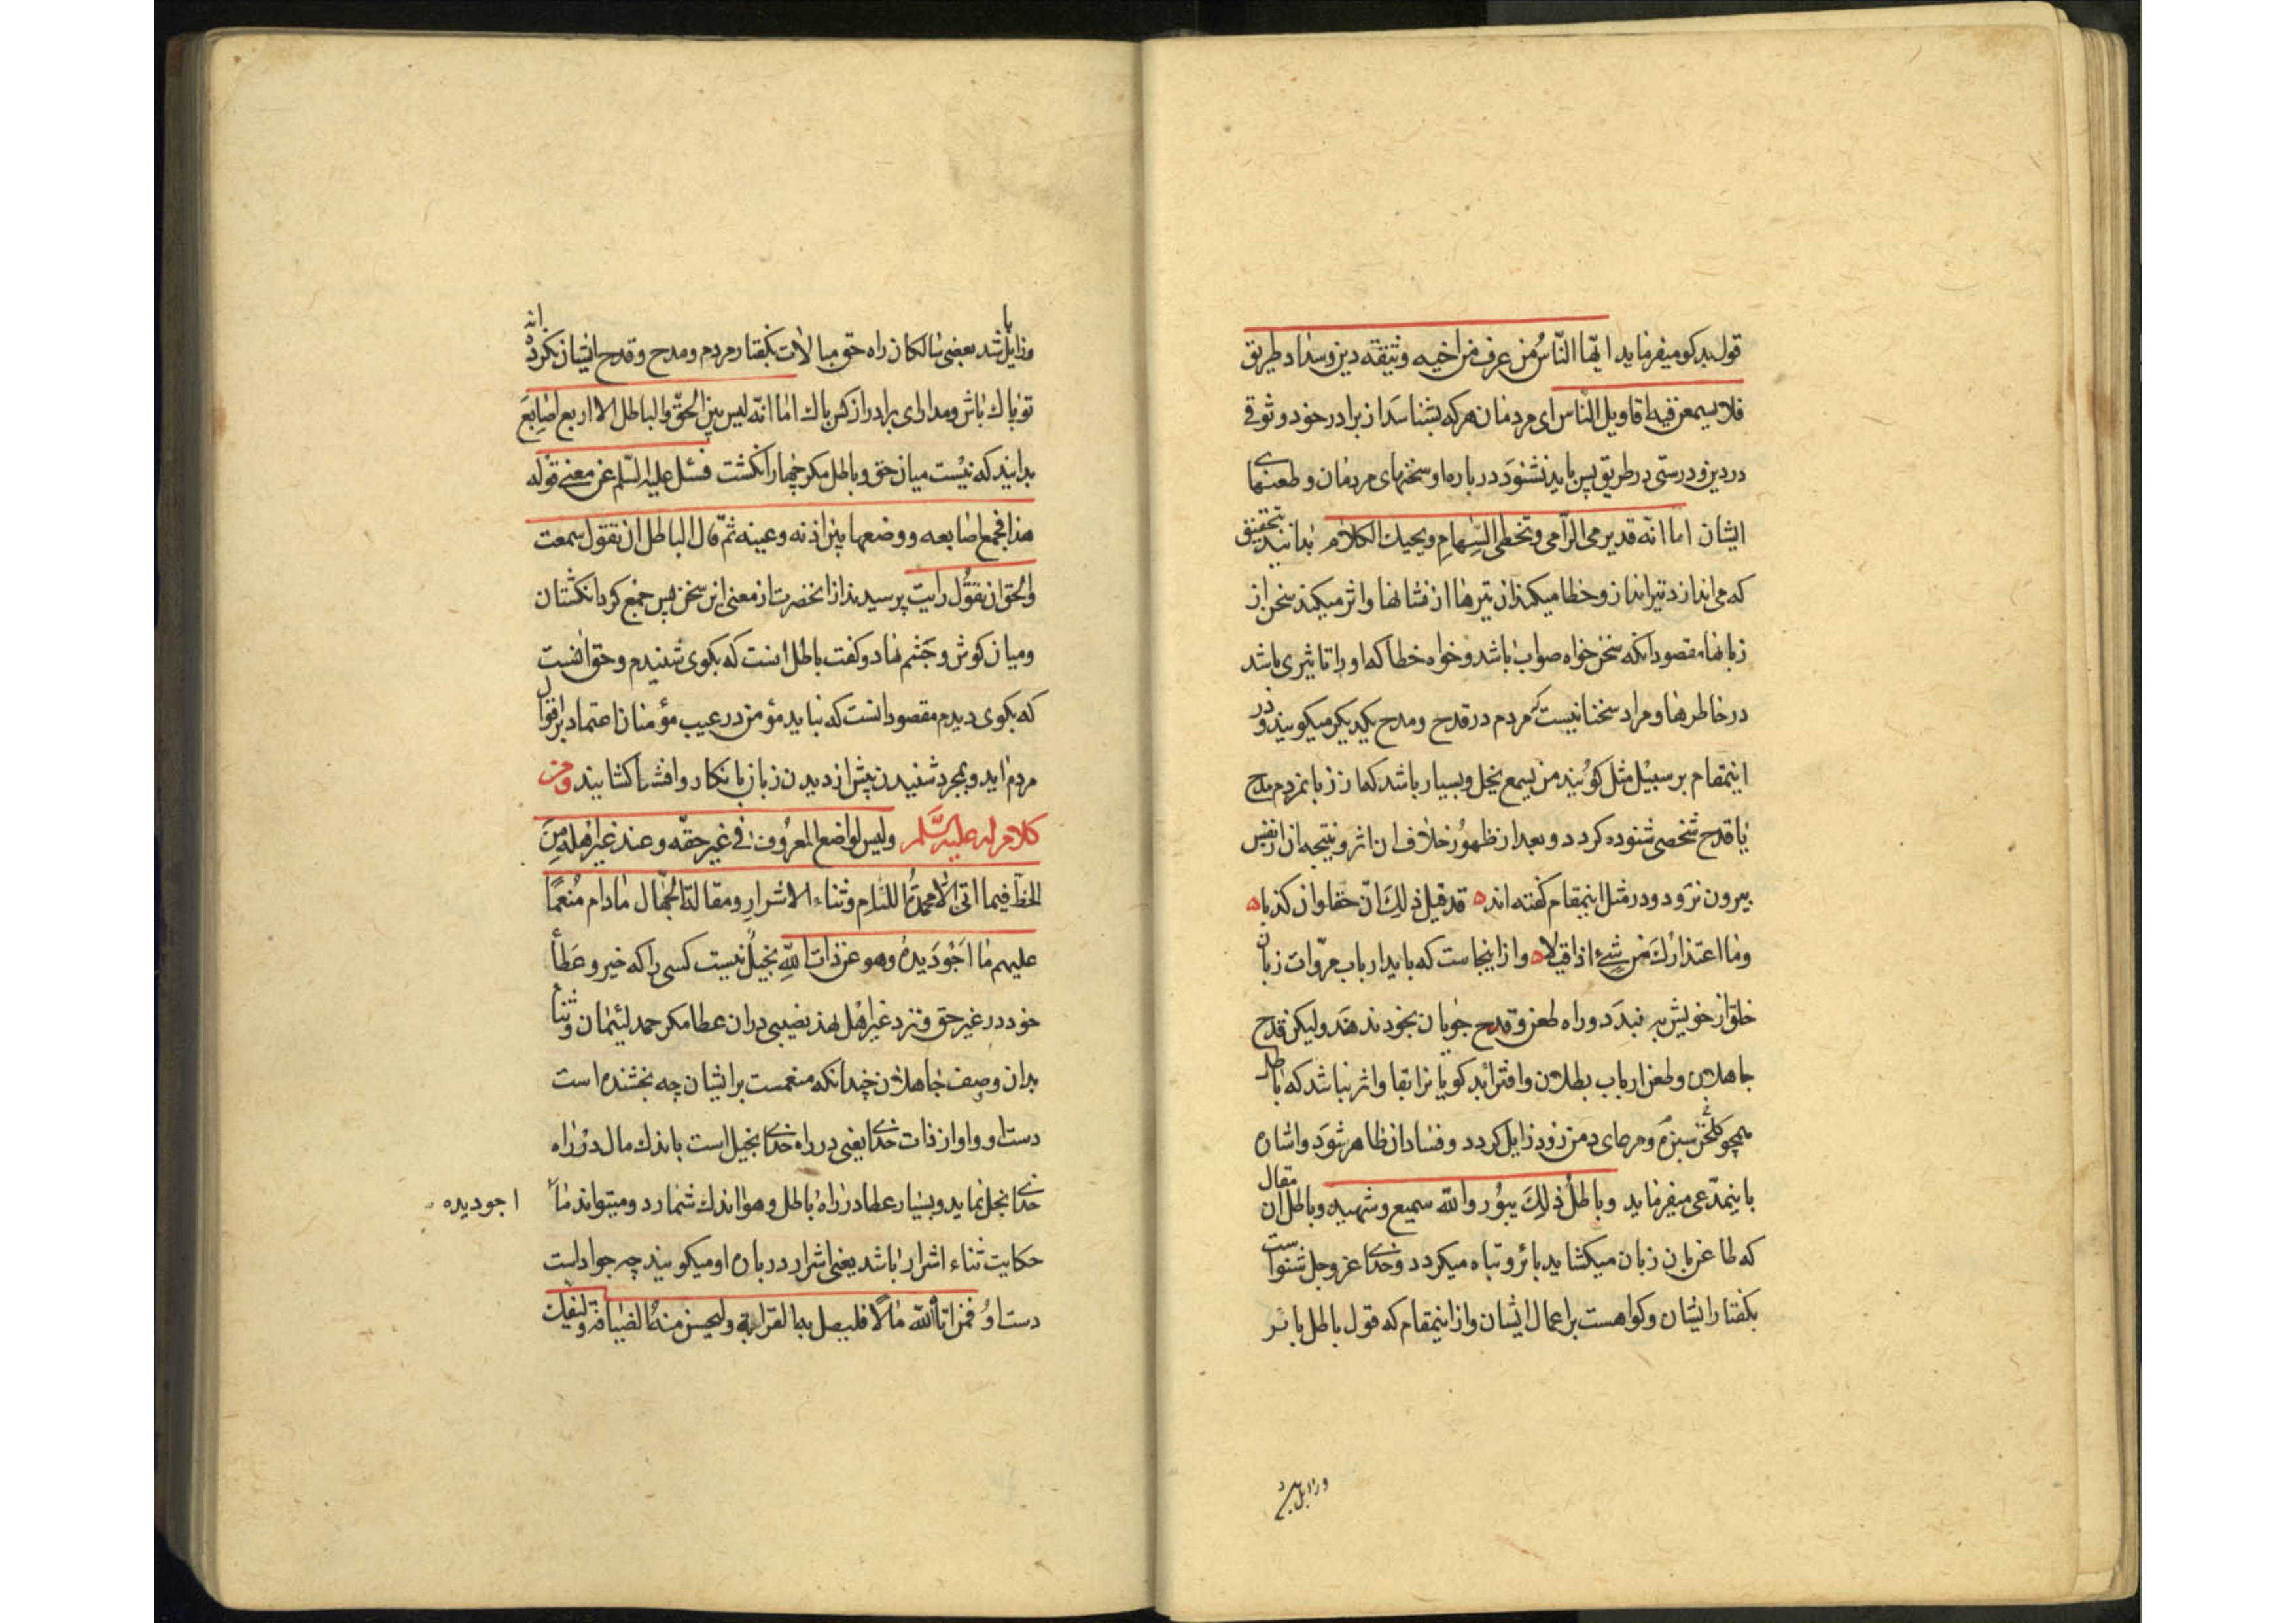 قول بدکو میفرماید ایّها النّاسُ من عرف من اخیه وثیقة دین و سداد طریق
فلا یسمعن فیه اقاویل الناس ای مردمان هرکه بشناسد از برادر خود وثوقی
در دین و درستی در طریق پس باید نشنود در باره او سخنهای مردمان و طعنهای
ایشان اما انّه قد یرمی الرّامی و تخطی السّهام و یحیك الکلام بدانید بتحقیق
که می اندازد تیرانداز و خطا میکند تیرها از نشانها و اثر میکند سخن از
زبانها مقصود آنکه سخن خواه صواب باشد و خواه خطا که او را تاثیری باشد
در خاطرها و مراد سخنانیست که مردم در قدح و مدح یکدیکر میکویند و در
اینمقام بر سبیل مثل کویند من یسمع یخل و بسیار باشد که از زبان مردم مدح
یا قدح شخصی شنوده کردد و بعد از ظهور خلاف ان اثر و نتیجه ان از نفس
بیرون نرود و در مثل اینمقام کفته اند ه قد قیل ذلِكَ انّ حقا و ان کذبا ه
وما اعتذارك من شیءٍ اذا قیلا ه و از اینجاست که باید ارباب مروّات زبان
خلق از خویش به نبدد و راه طعن و قدح جویان بخود ندهند ولیکن قدح
جاهلان و طعن ارباب بطلان و افترا بدکویانرا بقا و اثر نباشد که باطل
همچو کلخن سبزه و مرعای دمن زود زایل کردد و فساد ان ظاهر شود و اشاره
باینمدّعی میفرماید و باطلُ ذلِكَ یبُور والله سمیع و شهید و باطل ان مقال
که طاعن بان زبان میکشاید بائر و تباه میکردد و خدای عز وجل شنواست
بکفتار ایشان و کواهست بر اعمال ایشان و از اینمقام که قول باطل بائر
و زایل شد
و زایل باشد بعضی سالکان راه حق مبالات بکفتار مردم و مدح و قدح ایشان نکرده اند
تو پاك باش و مدار ای برادر از کس باك اما انّه لیس بین الحقّ والباطل الا اربع اصابعَ
بدانید که نیست میان حق و باطل مکر چهار انکشت فسئل علیه السّلم عن معنی قوله
هذا فجمع اصابعه و وضعها بین اذنه و عینه ثمّ قال الباطل ان تقول سمعت
والحق ان تقُول رایت پرسیدند از انحضرت از معنی این سخن پس جمع کرد انکشتان
و میان کوش و چشم نهاد و کفت باطل انست که بکوی شنیدم و حق انست
که بکوی دیدم مقصود انست که نباید مؤمن در عیب مؤمنان اعتماد بر اقوال
مردم اید و بمجرد شنیدن پیش از دیدن زبان بانکار و افشا کشایند و من
کلام له علیه السّلم ولیس لواضع المعروف فی غیر حقّه و عند غیر اهله مِنَ
الحظّ فیما اتی الّا محمدةُ اللئام و ثناء الاشرار و مقالة الجّهال مادام مُنعمًا
علیهم ما اَجْوَد یدهُ و هو عن ذات اللهِ بخیلٌ نیست کسی را که خیر و عطا
خود در غیر حق و نزد غیر اهل نهد نصیبی در ان عطا مکر حمد لئیمان و ثناء
بدان وصف جاهلان چندانکه منعمست بر ایشان چه بخشنده است
دست او و او از ذات خدای یعنی در راه خدای بخیل است باندك مال در راه
خدای بخل نماید و بسیار عطا در راه باطل و هوا اندك شمارد و میتواند ما
اجود یده
حکایت ثناء اشرار باشد یعنی اشرار در باره او میکویند چه جواد است
دست او فمن اتاه الله مالًا فلیصل به القرابة ولیحسن منهُ الضیافة ولیفك